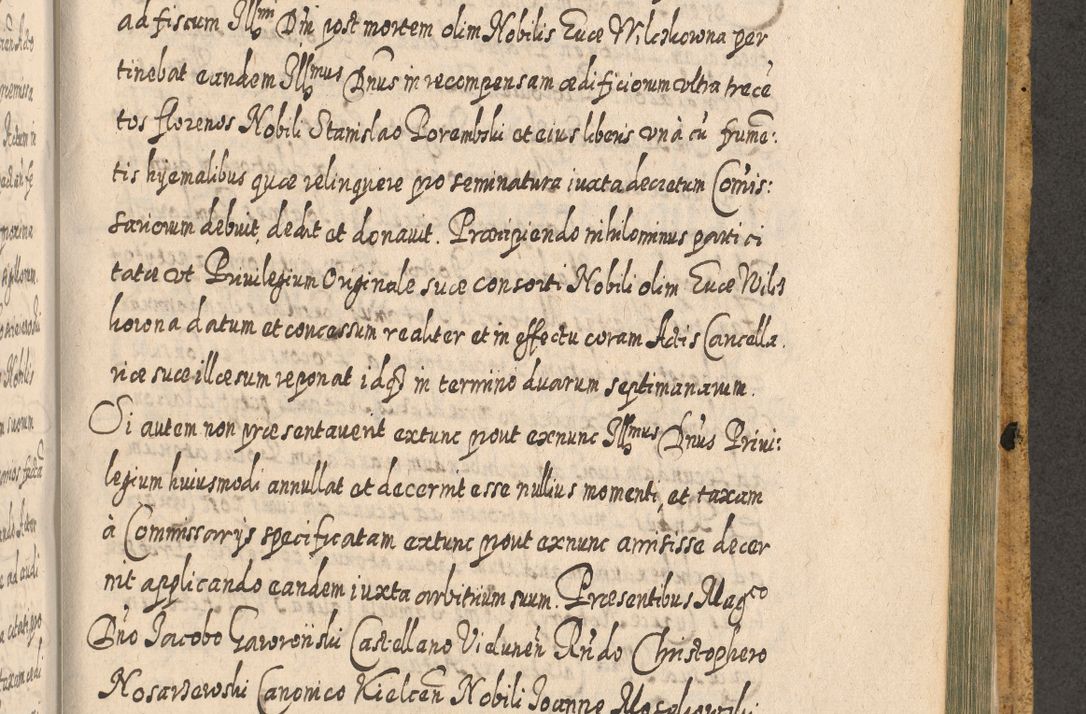 ad fiscum Illm̃ Dñi post mortem olim Nobilis Euæ Wilczkowna per
tinebat eandem Illmus Dñus in recompensam ædificiorum ultra trecẽ
tos florenos Nobili Stanislao Porembski et eius liberis unà cũ frumẽ:
tis hyemalibus quæ relinquere pro seminatura iuxta decretum Comis:
sariorum debuit, dedit et donauit. Præcipiendo nihilominus parti ci
tatæ ut Priuilegium Originale suæ consorti Nobili olim Euæ Wils
kowna datum et concessum realiter et in effectu coram Actis Cancella
riæ suæ illæsum reponat idq3 in termino duarum septimanarum.
Si autem non præsentauerit extunc prout exnunc Illmus Dñus Priui:
legium huiusmodi annullat et decernit esse nullius momenti, et taxam
à Commissarijs specificatam extunc prout exnunc amisisse decer
nit applicando eandem iuxta arbitrium suum. Præsentibus Magco
Dño Jacobo Gaworoński Castellano Vidunen̄ Rndo Christophero
Nosarzewski Canonico Kielcen̄ Nobili Joanne